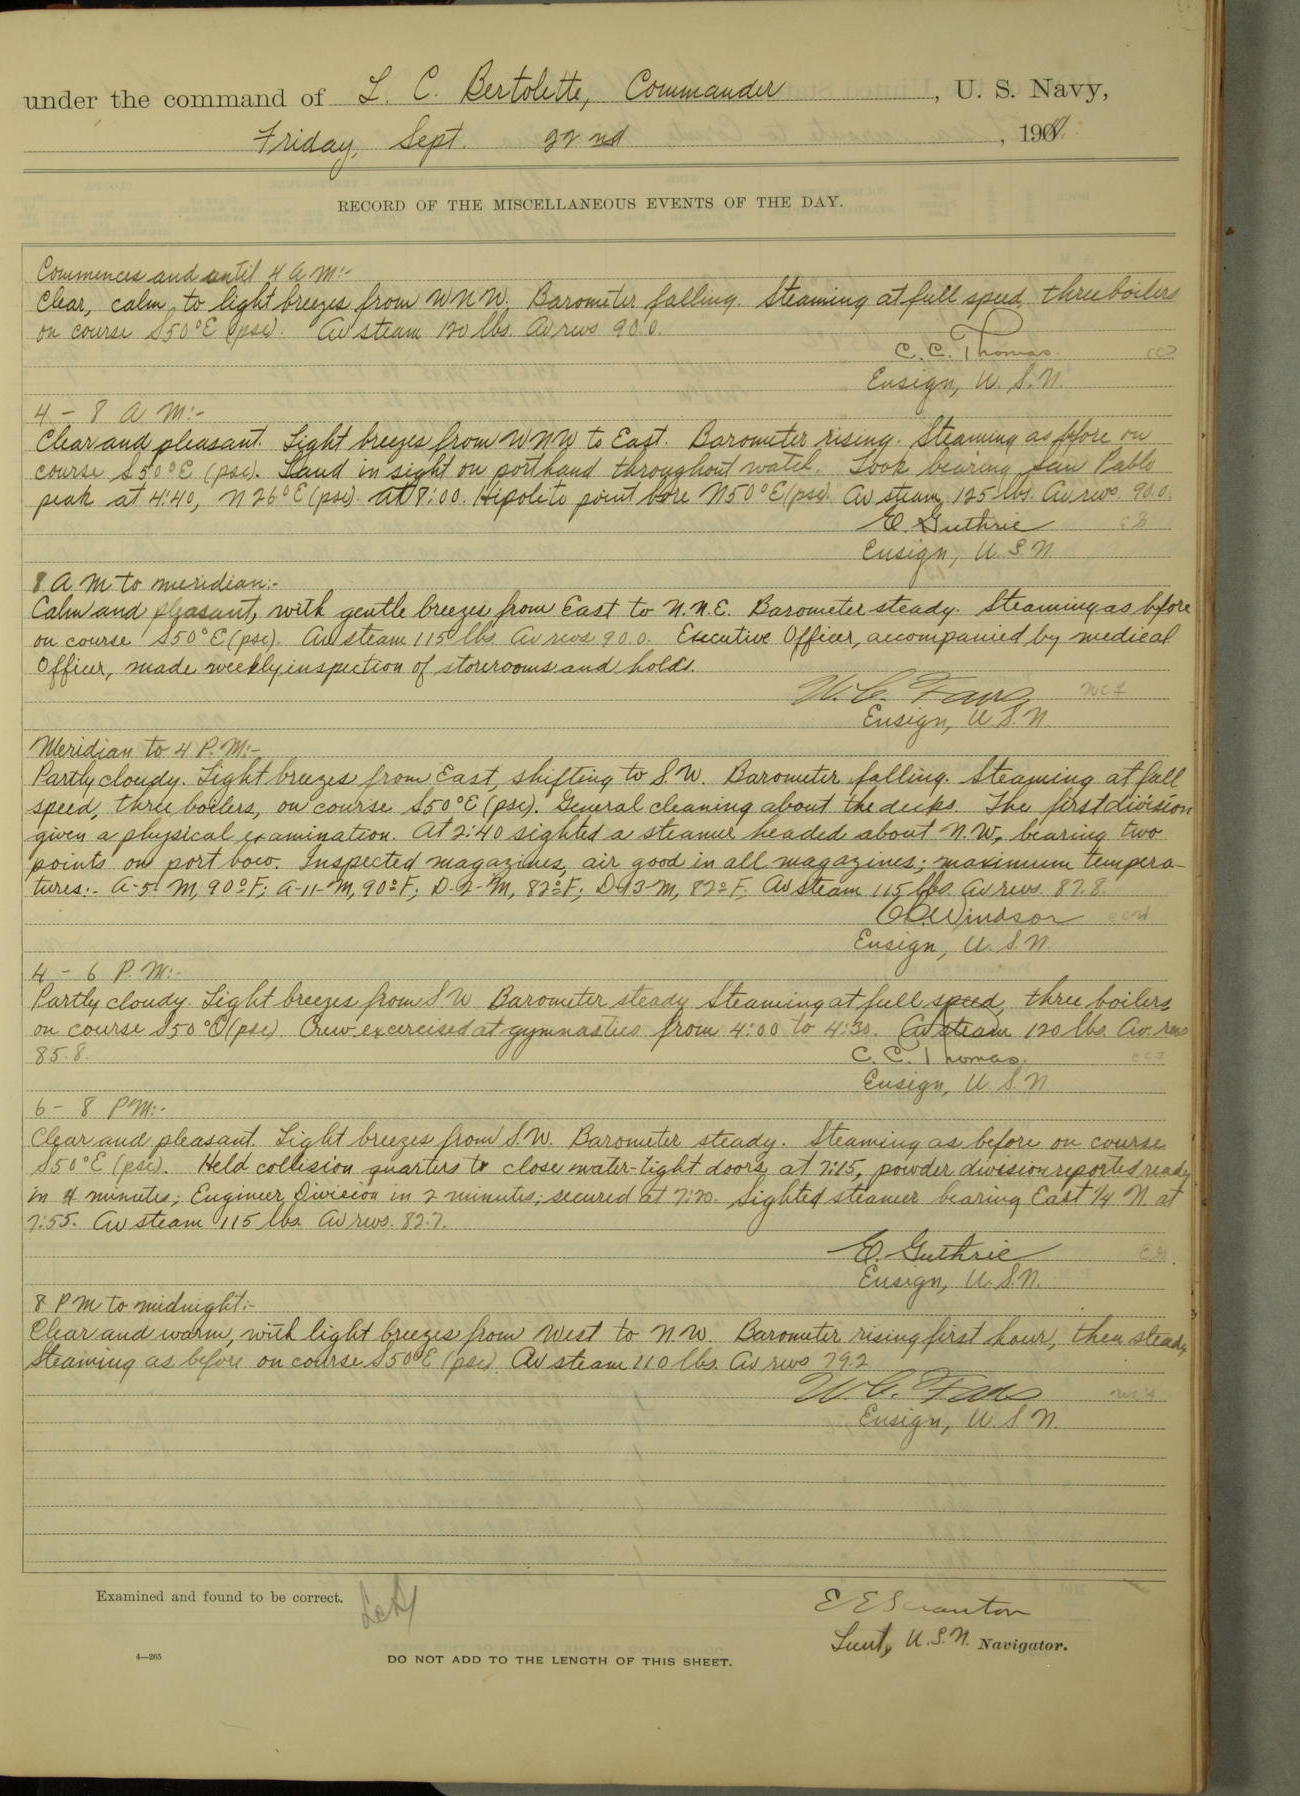 under the command of L. C. Bertolette, Commander, U. S. Navy,
Friday, Sept. 22nd, 1911.
RECORD OF THE MISCELLANEOUS EVENTS OF THE DAY.
Commences and until 4 A M:-
Clear, calm, to light breezes from WNW. Barometer falling. Steaming at full speed three boilers
on course S50°E (psc). Av steam 120 lbs. Av revs 90.0.
C. C. Thomas.
Ensign, U. S. N.
4 - 8 A M:-
Clear and pleasant. Light breezes from WNW to East. Barometer rising. Steaming as before on
course S50°E (psc). Land in sight on port hand throughout watch. Took bearing San Pablo
peak at 4:40, N26°E (psc). At 8:00. Hipolito point bore N50°E (psc). Av steam, 125 lbs. Av revs. 90.0.
E. Guthrie
Ensign, U S N.
8 A M to meridian:-
Calm and pleasant, with gentle breezes from East to N.N.E. Barometer steady. Steaming as before
on course S50°E (psc). Av steam 115 lbs. Av revs 90.0. Executive Officer, accompanied by medical
Officer, made weekly inspection of storerooms and holds.
W. C.
Ensign, U S. N.
Meridian to 4 P. M:-
Partly cloudy. Light breezes from East, shifting to S.W. Barometer falling. Steaming at full
speed, three boilers, on course S50°E (psc). General cleaning about the decks. The first division
given a physical examination. At 2:40 sighted a steamer headed about N.W, bearing two
points on port bow. Inspected magazines, air good in all magazines; maximum tempera-
tures:- A-5-M, 90°F; A-11-M, 90°F; D-2-M, 82°F; D-13-M, 82°F. Av steam 115 lbs. Av revs. 87.8.
Windsor
Ensign, U. S. N.
4 - 6 P. M:-
Partly cloudy. Light breezes from S W Barometer steady Steaming at full speed, three boilers,
on course S50°E (psc) Crew excercised at gymnastics from 4:00 to 4:30. Av steam 120 lbs. Av. revs
85.8.
C. C. Thomas.
Ensign, U. S. N
6 - 8 P M:-
Clear and pleasant. Light breezes from S.W. Barometer steady. Steaming as before on course
S50°E (psc). Held collision quarters to close water-tight doors, at 7:15, powder division reported ready
in 4 minutes; Engineer Division in 2 minutes; secured at 7:20. Sighted steamer bearing East 1/4 N. at
7:55. Av steam 115 lbs. Av revs. 82.7.
E. Guthrie
Ensign, U. S. N.
8 P M to midnight:-
Clear and warm, with light breezes from West to N W. Barometer rising first hour, then steady
Steaming as before on course S50°E (psc). Av steam 110 lbs. Av revs 79.2
W. C.
Ensign, U. S N.
Examined and found to be correct.
E E Scranton
Lieut, U. S. N. Navigator.
4—265
DO NOT ADD TO THE LENGTH OF THIS SHEET.